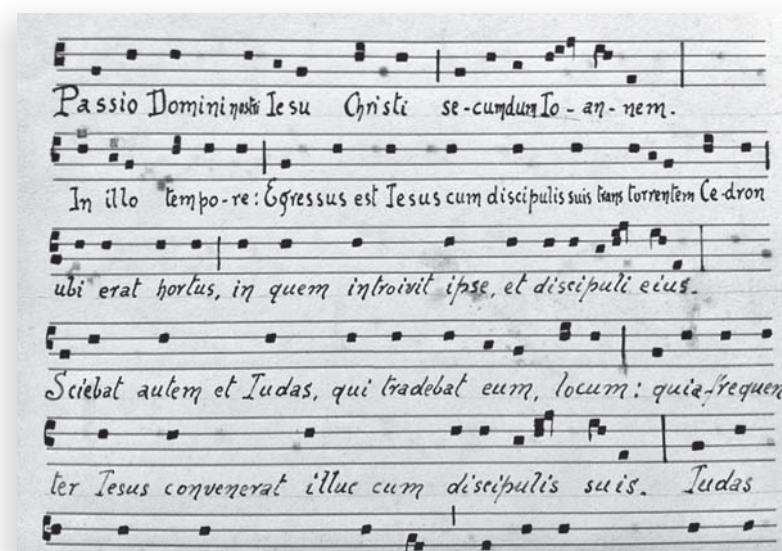 Passio Domini nostri Iesu Christi se-cumdum Io-an-nem.
In illo tempo-re: Egressus est Iesus cum discipulis suis trans torrentem Ce-dron
ubi erat hortus, in quem introivit ipse, et discipuli eius.
Sciebat autem et Iudas, qui tradebat eum, locum: quia frequen
ter Iesus convenerat illuc cum discipulis suis. Iudas